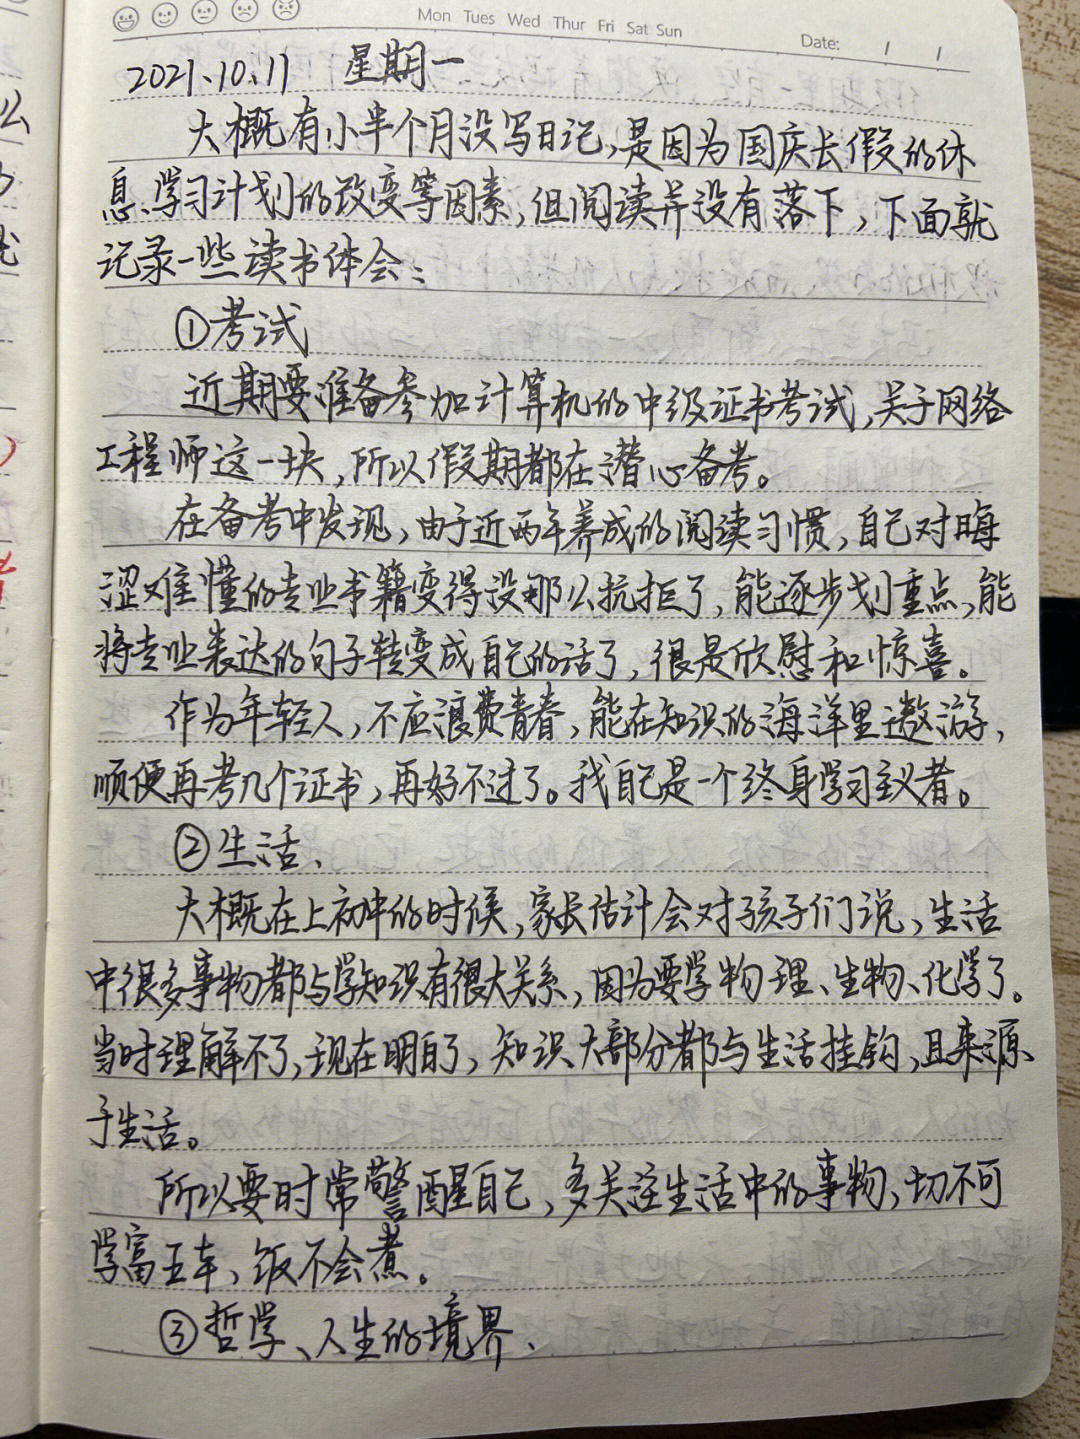 Mon Tues Wed Thur Fri Sat Sun
Date: / /
2021.10.11 星期一
大概有小半个月没写日记,是因为国庆长假的休
息、学习计划的改变等因素,但阅读并没有落下,下面就
记录一些读书体会:
①考试
近期要准备参加计算机的中级证书考试,关于网络
工程师这一块,所以假期都在潜心备考。
在备考中发现,由于近两年养成的阅读习惯,自己对晦
涩难懂的专业书籍变得没那么抗拒了,能逐步划重点,能
将专业表达的句子转变成自己的话了,很是欣慰和惊喜。
作为年轻人,不应浪费青春,能在知识的海洋里遨游,
顺便再考几个证书,再好不过了。我自己是一个终身学习主义者。
②生活、
大概在上初中的时候,家长估计会对孩子们说,生活
中很多事物都与学知识有很大关系,因为要学物理、生物、化学了。
当时理解不了,现在明白了,知识大部分都与生活挂钩,且来源
于生活。
所以要时常警醒自己,多关注生活中的事物,切不可
学富五车,饭不会煮。
③哲学、人生的境界、